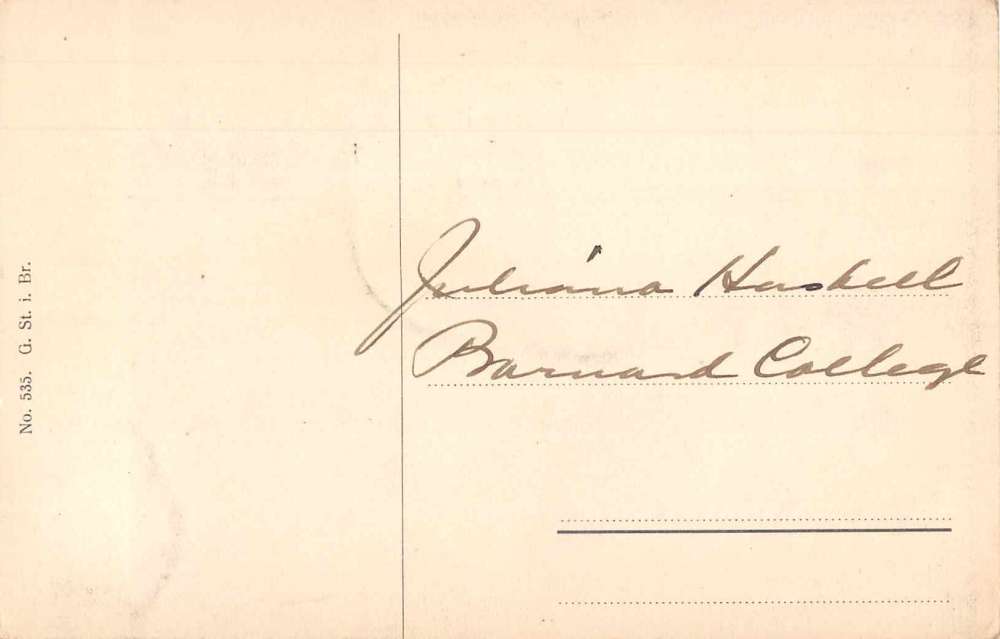 No. 535. G. St. i. Br.
Juliana Haskell
Barnard College